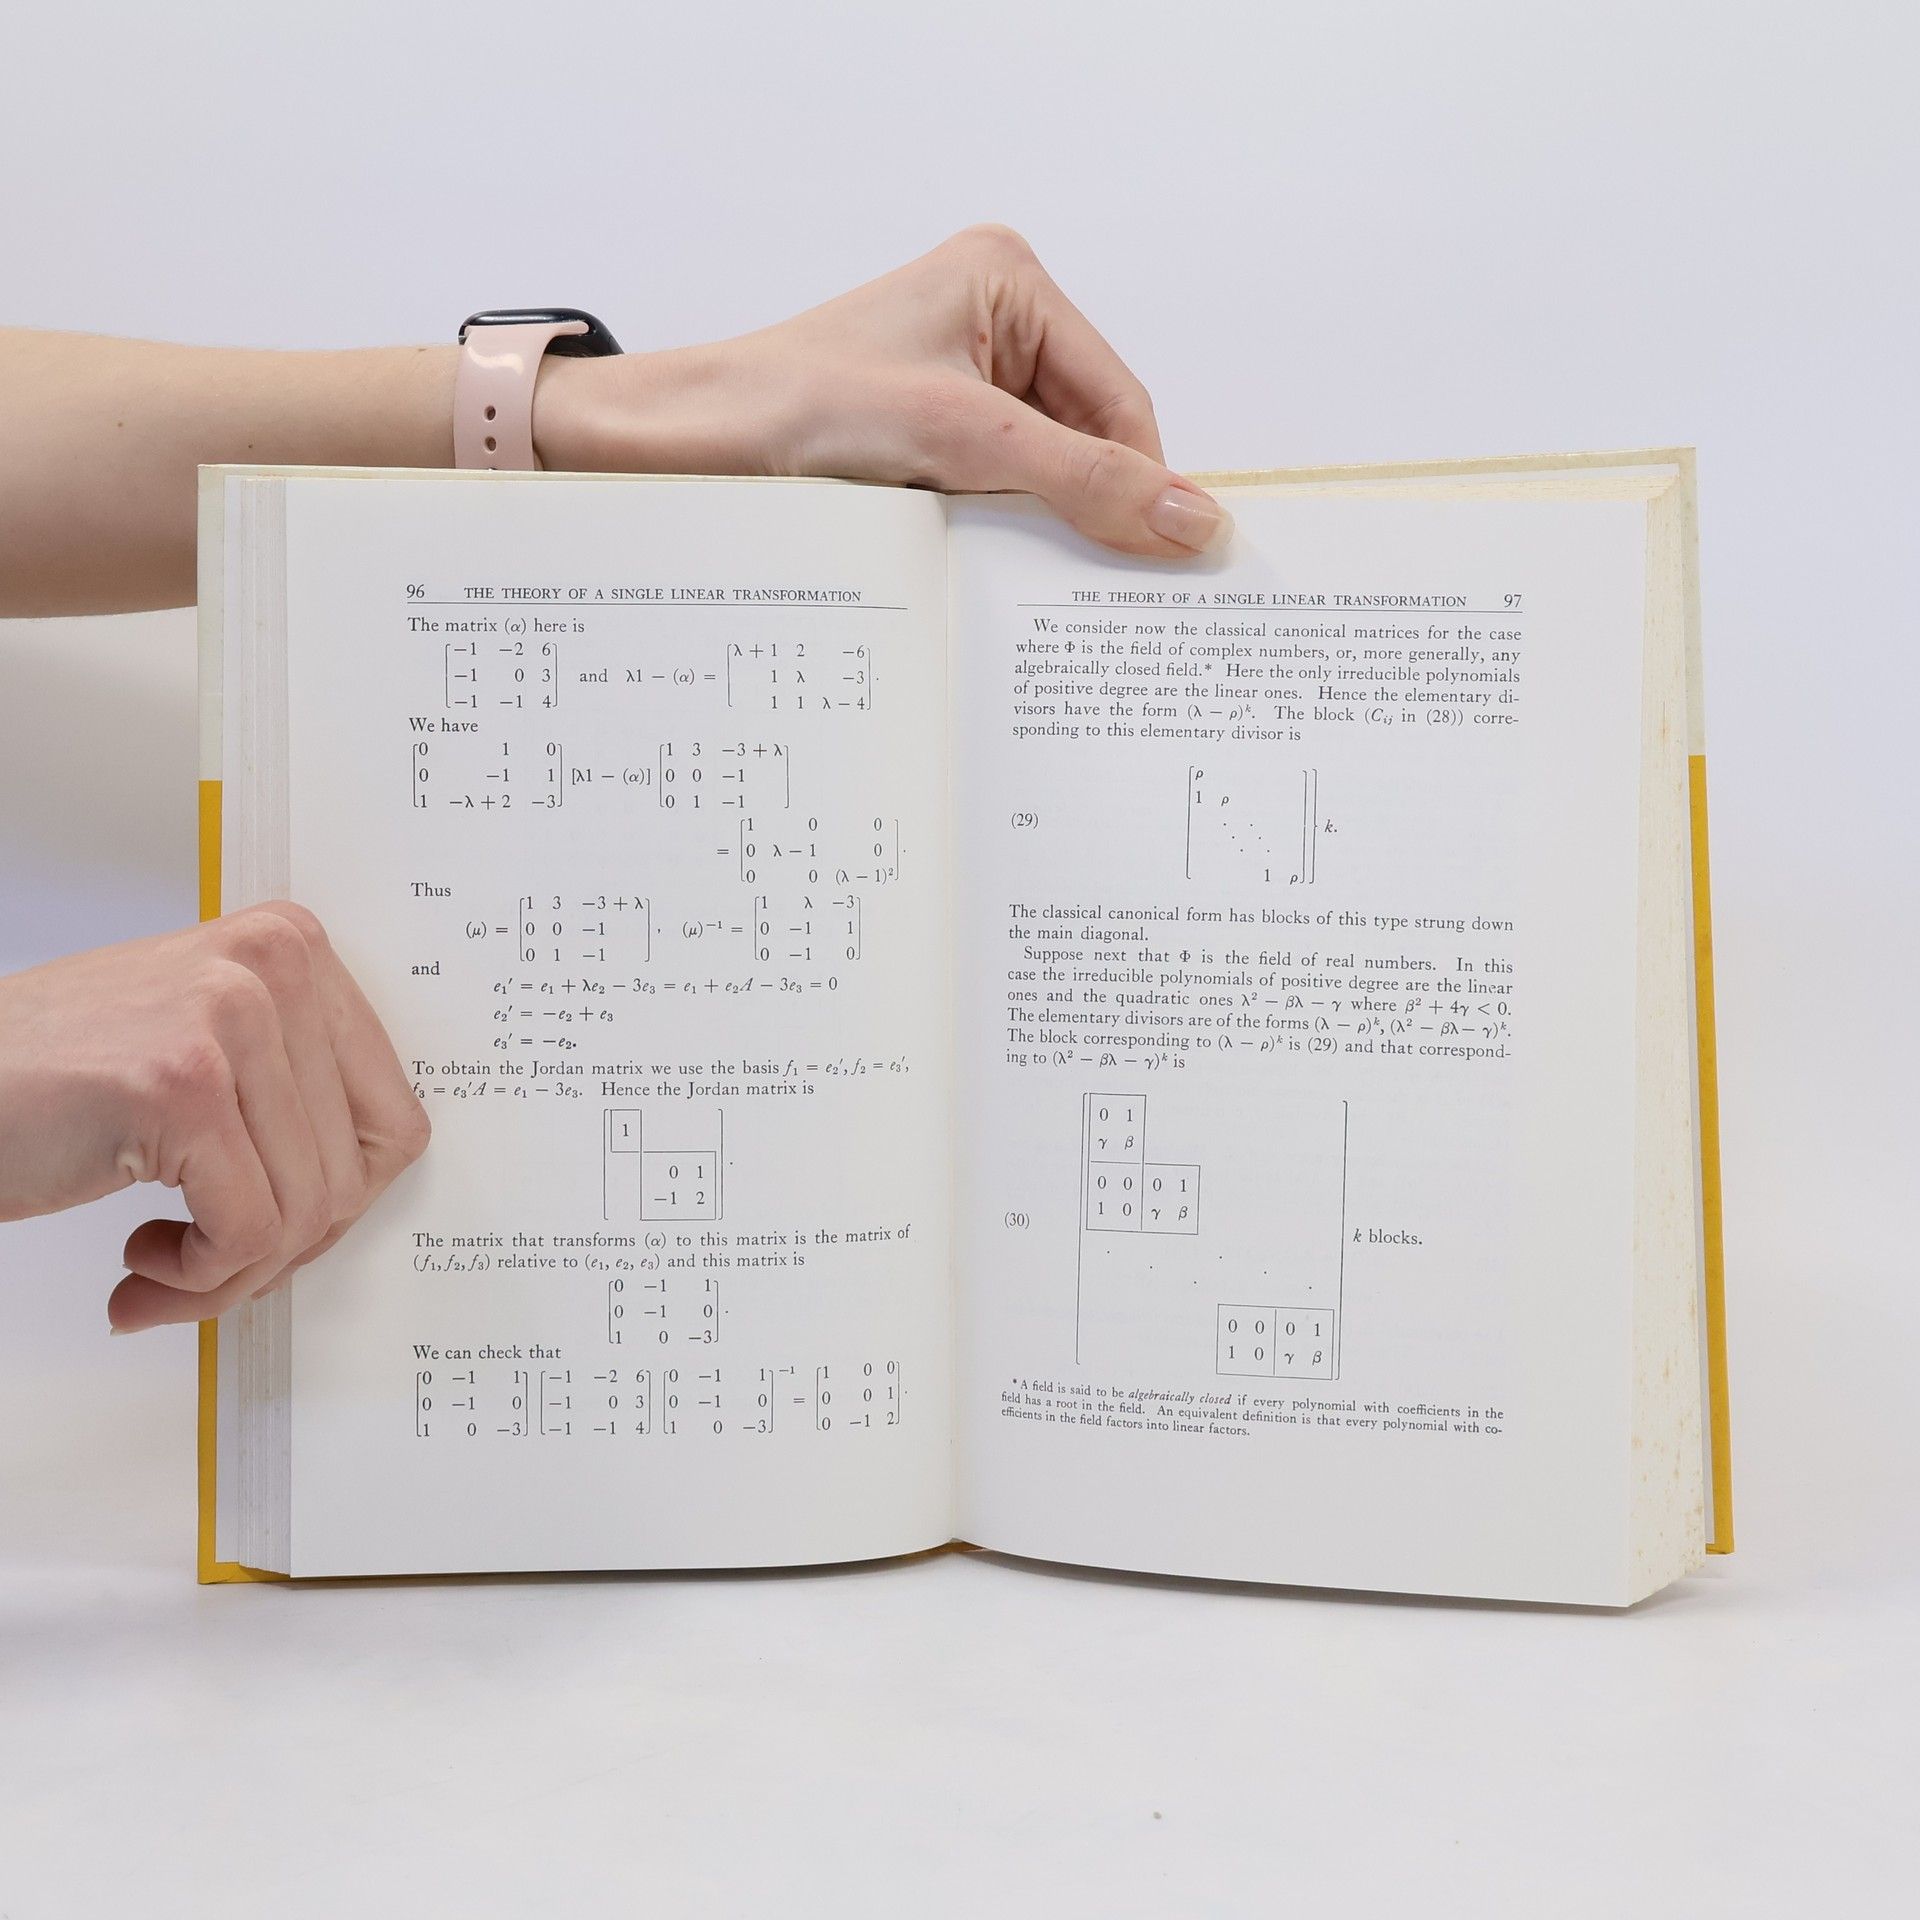 96 THE THEORY OF A SINGLE LINEAR TRANSFORMATION
The matrix (α) here is
[−1 −2 6]
[−1 0 3] and λ1 − (α) = [λ + 1 2 −6]
[−1 −1 4] [1 λ −3] .
[1 1 λ − 4]
We have
[0 1 0] [1 3 −3 + λ]
[0 −1 1] [λ1 − (α)] [0 0 −1]
[1 −λ + 2 −3] [0 1 −1]
[1 0 0]
= [0 λ − 1 0] .
[0 0 (λ − 1)²]
Thus
[1 3 −3 + λ] [1 λ −3]
(μ) = [0 0 −1] , (μ)⁻¹ = [0 −1 1]
[0 1 −1] [0 −1 0]
and
e₁′ = e₁ + λe₂ − 3e₃ = e₁ + e₂A − 3e₃ = 0
e₂′ = −e₂ + e₃
e₃′ = −e₂.
To obtain the Jordan matrix we use the basis f₁ = e₂′, f₂ = e₃′,
f₃ = e₃′A = e₁ − 3e₃. Hence the Jordan matrix is
1
0 1 .
−1 2
The matrix that transforms (α) to this matrix is the matrix of
(f₁, f₂, f₃) relative to (e₁, e₂, e₃) and this matrix is
[0 −1 1]
[0 −1 0] .
[1 0 −3]
We can check that
[0 −1 1] [−1 −2 6] [0 −1 1]⁻¹ [1 0 0]
[0 −1 0] [−1 0 3] [0 −1 0] = [0 0 1] .
[1 0 −3] [−1 −1 4] [1 0 −3] [0 −1 2]
THE THEORY OF A SINGLE LINEAR TRANSFORMATION 97
We consider now the classical canonical matrices for the case
where Φ is the field of complex numbers, or, more generally, any
algebraically closed field.* Here the only irreducible polynomials
of positive degree are the linear ones. Hence the elementary di-
visors have the form (λ − ρ)ᵏ. The block (Cᵢⱼ in (28)) corre-
sponding to this elementary divisor is
ρ
1 ρ
(29) k.
1 ρ
The classical canonical form has blocks of this type strung down
the main diagonal.
Suppose next that Φ is the field of real numbers. In this
case the irreducible polynomials of positive degree are the linear
ones and the quadratic ones λ² − βλ − γ where β² + 4γ < 0.
The elementary divisors are of the forms (λ − ρ)ᵏ, (λ² − βλ − γ)ᵏ.
The block corresponding to (λ − ρ)ᵏ is (29) and that correspond-
ing to (λ² − βλ − γ)ᵏ is
0 1
γ β
0 0 0 1
1 0 γ β
(30) k blocks.
0 0 0 1
1 0 γ β
* A field is said to be algebraically closed if every polynomial with coefficients in the
field has a root in the field. An equivalent definition is that every polynomial with co-
efficients in the field factors into linear factors.